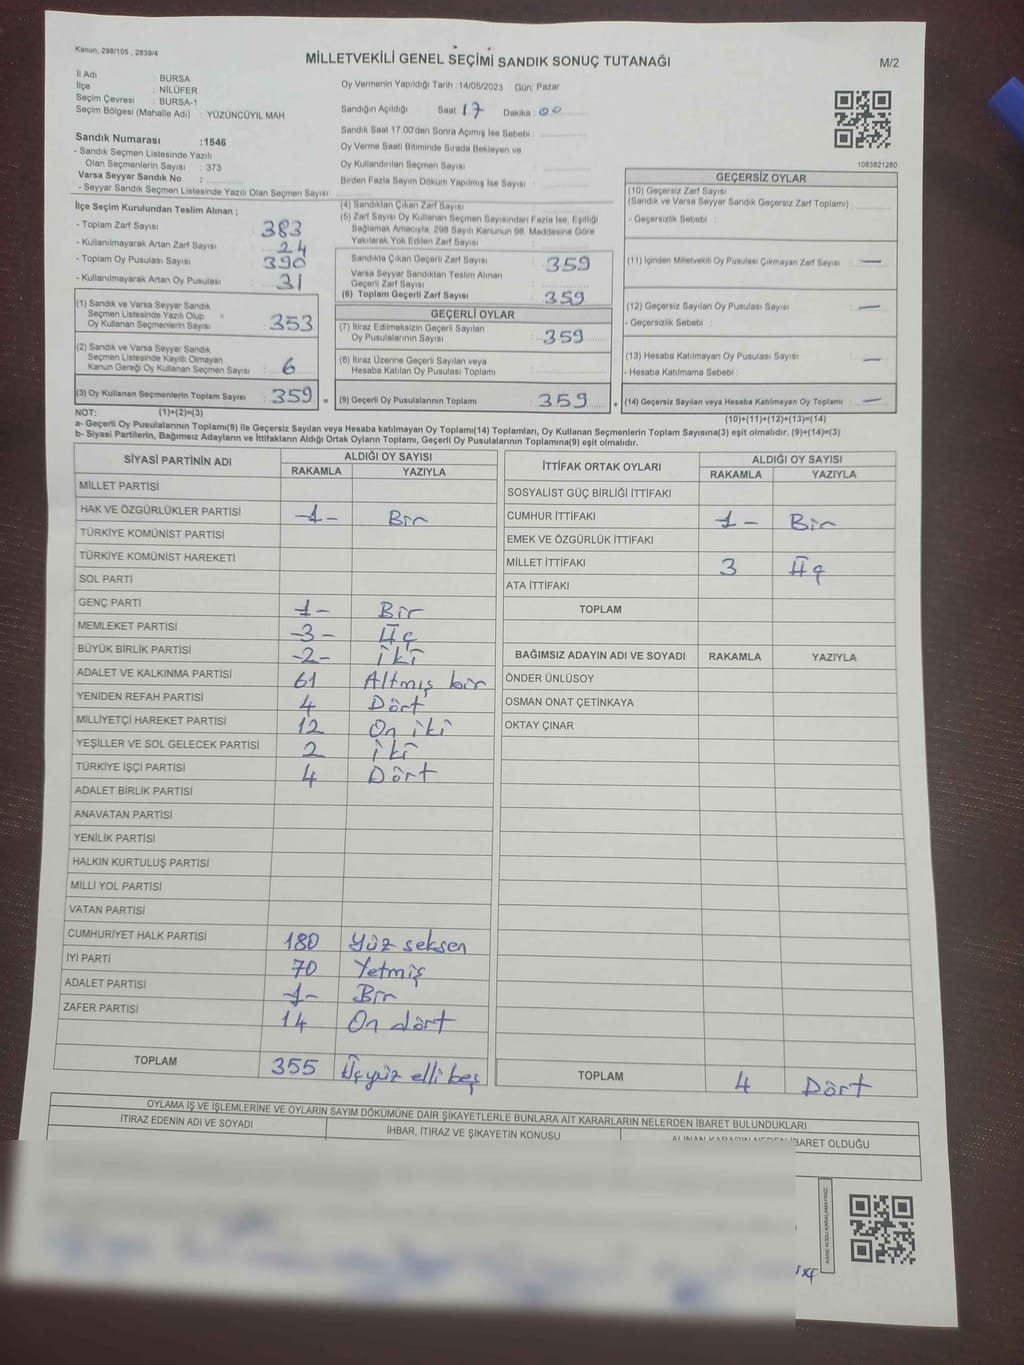 Kanun: 298/105 , 2839/4
MİLLETVEKİLİ GENEL SEÇİMİ SANDIK SONUÇ TUTANAĞI
M/2
İl Adı : BURSA
İlçe : NİLÜFER
Seçim Çevresi : BURSA-1
Seçim Bölgesi (Mahalle Adı) : YÜZÜNCÜYIL MAH
Sandık Numarası :1546
- Sandık Seçmen Listesinde Yazılı
Olan Seçmenlerin Sayısı : 373
Varsa Seyyar Sandık No :
- Seyyar Sandık Seçmen Listesinde Yazılı Olan Seçmen Sayısı :
Oy Vermenin Yapıldığı Tarih : 14/05/2023 Gün: Pazar
Sandığın Açıldığı Saat: 17 Dakika : 00
Sandık Saat 17:00'dan Sonra Açılmış İse Sebebi :
Oy Verme Saati Bitiminde Sırada Bekleyen ve
Oy Kullandırılan Seçmen Sayısı :
Birden Fazla Sayım Döküm Yapılmış İse Sayısı :
1083821280
İlçe Seçim Kurulundan Teslim Alınan ;
- Toplam Zarf Sayısı : 383
- Kullanılmayarak Artan Zarf Sayısı : 24
- Toplam Oy Pusulası Sayısı : 390
- Kullanılmayarak Artan Oy Pusulası : 31
(1) Sandık ve Varsa Seyyar Sandık
Seçmen Listesinde Yazılı Olup
Oy Kullanan Seçmenlerin Sayısı : 353
(2) Sandık ve Varsa Seyyar Sandık
Seçmen Listesinde Kayıtlı Olmayan
Kanun Gereği Oy Kullanan Seçmen Sayısı : 6
(3) Oy Kullanan Seçmenlerin Toplam Sayısı : 359 =
(4) Sandıktan Çıkan Zarf Sayısı :
(5) Zarf Sayısı Oy Kullanan Seçmen Sayısından Fazla İse, Eşitliği
Sağlamak Amacıyla, 298 Sayılı Kanunun 98. Maddesine Göre
Yakılarak Yok Edilen Zarf Sayısı :
Sandıkta Çıkan Geçerli Zarf Sayısı : 359
Varsa Seyyar Sandıktan Teslim Alınan
Geçerli Zarf Sayısı :
(6) Toplam Geçerli Zarf Sayısı : 359
GEÇERLİ OYLAR
(7) İtiraz Edilmeksizin Geçerli Sayılan
Oy Pusulalarının Sayısı : 359
(8) İtiraz Üzerine Geçerli Sayılan veya
Hesaba Katılan Oy Pusulası Toplamı :
(9) Geçerli Oy Pusulalarının Toplamı : 359 +
GEÇERSİZ OYLAR
(10) Geçersiz Zarf Sayısı
(Sandık ve Varsa Seyyar Sandık Geçersiz Zarf Toplamı) :
- Geçersizlik Sebebi :
(11) İçinden Milletvekili Oy Pusulası Çıkmayan Zarf Sayısı : —
(12) Geçersiz Sayılan Oy Pusulası Sayısı : —
- Geçersizlik Sebebi :
(13) Hesaba Katılmayan Oy Pusulası Sayısı : —
- Hesaba Katılmama Sebebi :
(14) Geçersiz Sayılan veya Hesaba Katılmayan Oy Toplamı : —
NOT: (1)+(2)=(3) (10)+(11)+(12)+(13)=(14)
a- Geçerli Oy Pusulalarının Toplamı(9) ile Geçersiz Sayılan veya Hesaba katılmayan Oy Toplamı(14) Toplamları, Oy Kullanan Seçmenlerin Toplam Sayısına(3) eşit olmalıdır. (9)+(14)=(3)
b- Siyasi Partilerin, Bağımsız Adayların ve İttifakların Aldığı Ortak Oyların Toplamı, Geçerli Oy Pusulalarının Toplamına(9) eşit olmalıdır.
SİYASİ PARTİNİN ADI ALDIĞI OY SAYISI
RAKAMLA YAZIYLA
MİLLET PARTİSİ
HAK VE ÖZGÜRLÜKLER PARTİSİ -1- Bir
TÜRKİYE KOMÜNİST PARTİSİ
TÜRKİYE KOMÜNİST HAREKETİ
SOL PARTİ
GENÇ PARTİ 1- Bir
MEMLEKET PARTİSİ -3- Üç
BÜYÜK BİRLİK PARTİSİ -2- iki
ADALET VE KALKINMA PARTİSİ 61 Altmış bir
YENİDEN REFAH PARTİSİ 4 Dört
MİLLİYETÇİ HAREKET PARTİSİ 12 On iki
YEŞİLLER VE SOL GELECEK PARTİSİ 2 iki
TÜRKİYE İŞÇİ PARTİSİ 4 Dört
ADALET BİRLİK PARTİSİ
ANAVATAN PARTİSİ
YENİLİK PARTİSİ
HALKIN KURTULUŞ PARTİSİ
MİLLİ YOL PARTİSİ
VATAN PARTİSİ
CUMHURİYET HALK PARTİSİ 180 Yüz seksen
İYİ PARTİ 70 Yetmiş
ADALET PARTİSİ -1- Bir
ZAFER PARTİSİ 14 On dört
TOPLAM 355 Üçyüz elli beş
İTTİFAK ORTAK OYLARI ALDIĞI OY SAYISI
RAKAMLA YAZIYLA
SOSYALİST GÜÇ BİRLİĞİ İTTİFAKI
CUMHUR İTTİFAKI 1- Bir
EMEK VE ÖZGÜRLÜK İTTİFAKI
MİLLET İTTİFAKI 3 Üç
ATA İTTİFAKI
TOPLAM
BAĞIMSIZ ADAYIN ADI VE SOYADI RAKAMLA YAZIYLA
ÖNDER ÜNLÜSOY
OSMAN ONAT ÇETİNKAYA
OKTAY ÇINAR
TOPLAM 4 Dört
OYLAMA İŞ VE İŞLEMLERİNE VE OYLARIN SAYIM DÖKÜMÜNE DAİR ŞİKAYETLERLE BUNLARA AİT KARARLARIN NELERDEN İBARET BULUNDUKLARI
İTİRAZ EDENİN ADI VE SOYADI
İHBAR, İTİRAZ VE ŞİKAYETİN KONUSU
ALINAN KARARIN NEDEN İBARET OLDUĞU
KARE KODU KARALAMAYINIZ!